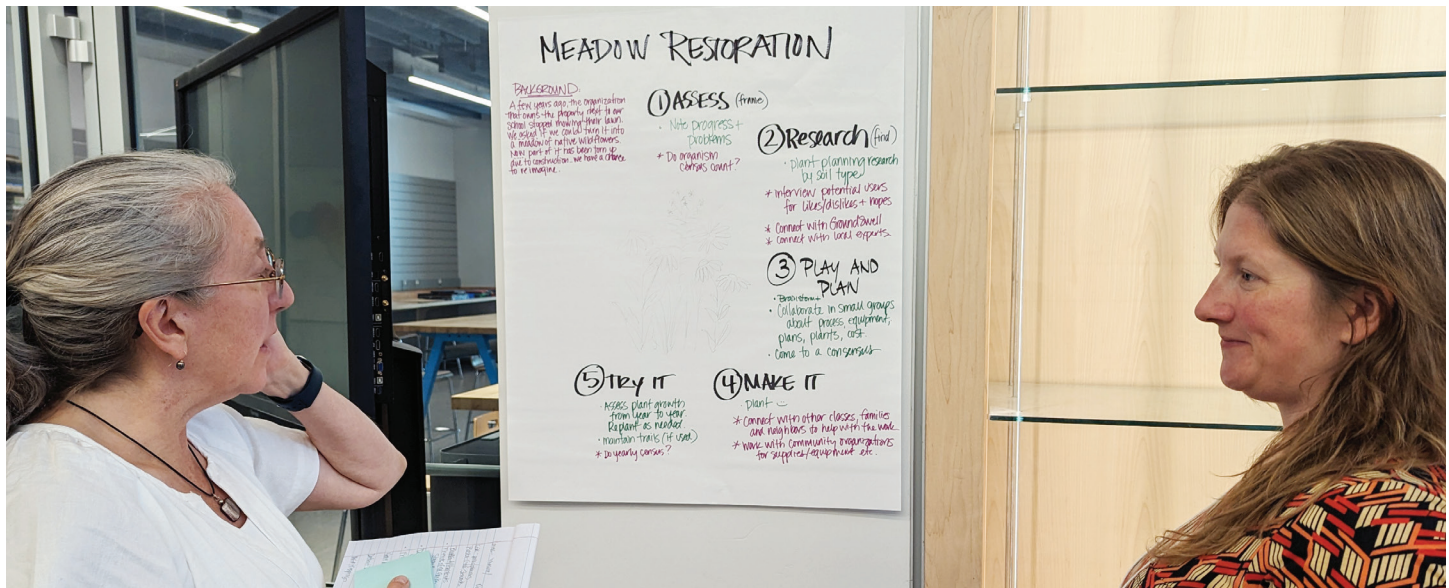 MEADOW RESTORATION
BACKGROUND:
A few years ago, the organization
that owns the property next to our
school stopped mowing their lawn.
We asked if we could turn it into
a meadow of native wildflowers.
Now part of it has been torn up
due to construction. we have a chance
to re imagine.
① ASSESS (frame)
• Note progress +
problems
* Do organism
census count?
② Research (find)
• plant planning research
by soil type
* interview potential users
for likes/dislikes + hopes
* Connect with GroundSwell
* connect with local experts
③ PLAY AND
PLAN
• Brainstorm +
• Collaborate in small groups
about process, equipment,
plans, plants, cost
• Come to a consensus
④ MAKE IT
• plant
* connect with other classes, families
and neighbors to help with the work
* work with community organizations
for supplies/equipment etc.
⑤ TRY IT
• Assess plant growth
from year to year.
Replant as needed
• maintain trails (if used)
* Do yearly census?